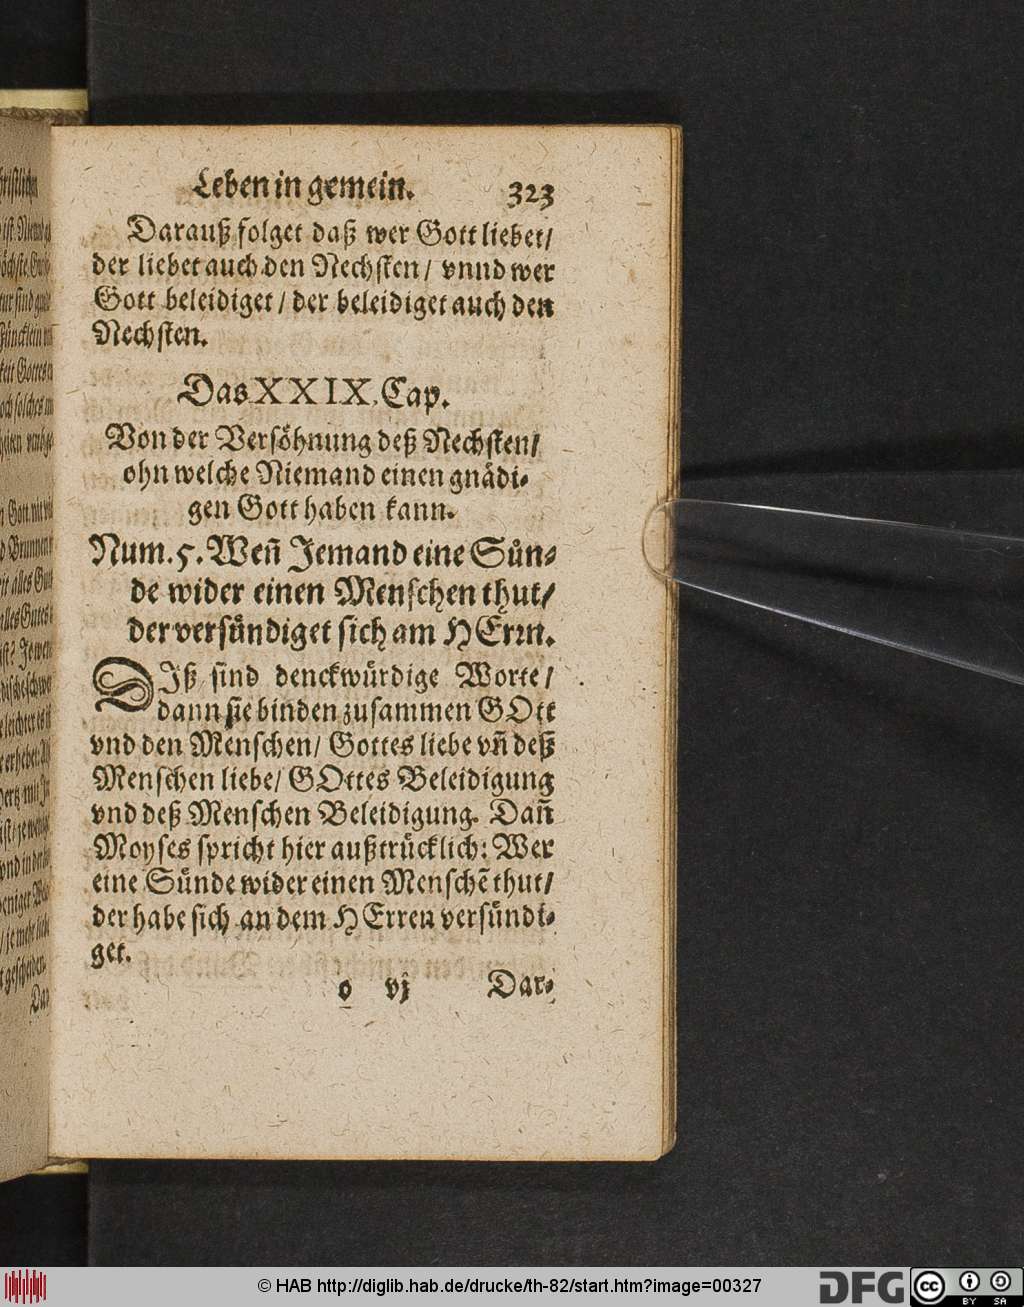 Leben in gemein. 323
Darauß folget daß wer Gott liebet/
der liebet auch den Nechsten/ vnnd wer
Gott beleidiget/ der beleidiget auch den
Nechsten.
Das XXIX. Cap.
Von der Versöhnung deß Nechsten/
ohn welche Niemand einen gnädi-
gen Gott haben kann.
Num. 5. Weñ Jemand eine Sün-
de wider einen Menschen thut/
der versündiget sich am HErrn.
DIß sind denckwürdige Worte/
dann sie binden zusammen GOtt
vnd den Menschen/ Gottes liebe vñ deß
Menschen liebe/ GOttes Beleidigung
vnd deß Menschen Beleidigung. Dañ
Moyses spricht hier außtrücklich: Wer
eine Sünde wider einen Menschẽ thut/
der habe sich an dem HErren versündi-
get.
o vj Dar-
© HAB http://diglib.hab.de/drucke/th-82/start.htm?image=00327
DFG
cc BY SA